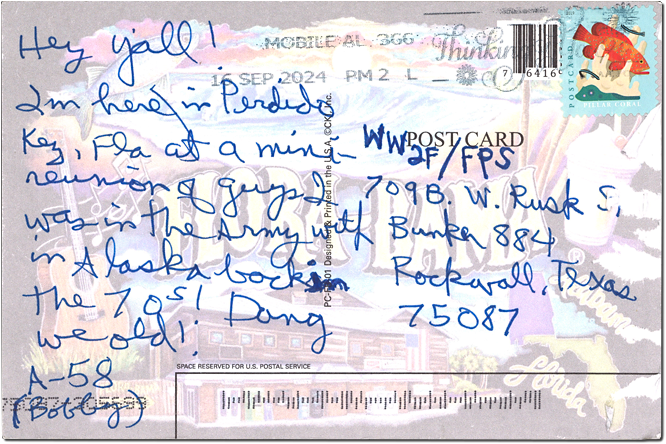 Hey y'all!
I'm here in Perdido
Key, Fla at a mini-
reunion of guys I
was in the Army with
in Alaska back in
the 70s! Dang
we old!
A-58
(Bobby)
MOBILE AL 366
16 SEP 2024 PM 2 L
Thinking
7 6416
POSTCARD
PILLAR CORAL
POST CARD
WW2F/FPS
709B. W. Rusk S,
Bunker 884
Rockwall, Texas
75087
PC- Designed & Printed in the U.S.A. ©CKI, Inc.
FLORA-BAMA
Florida
SPACE RESERVED FOR U.S. POSTAL SERVICE